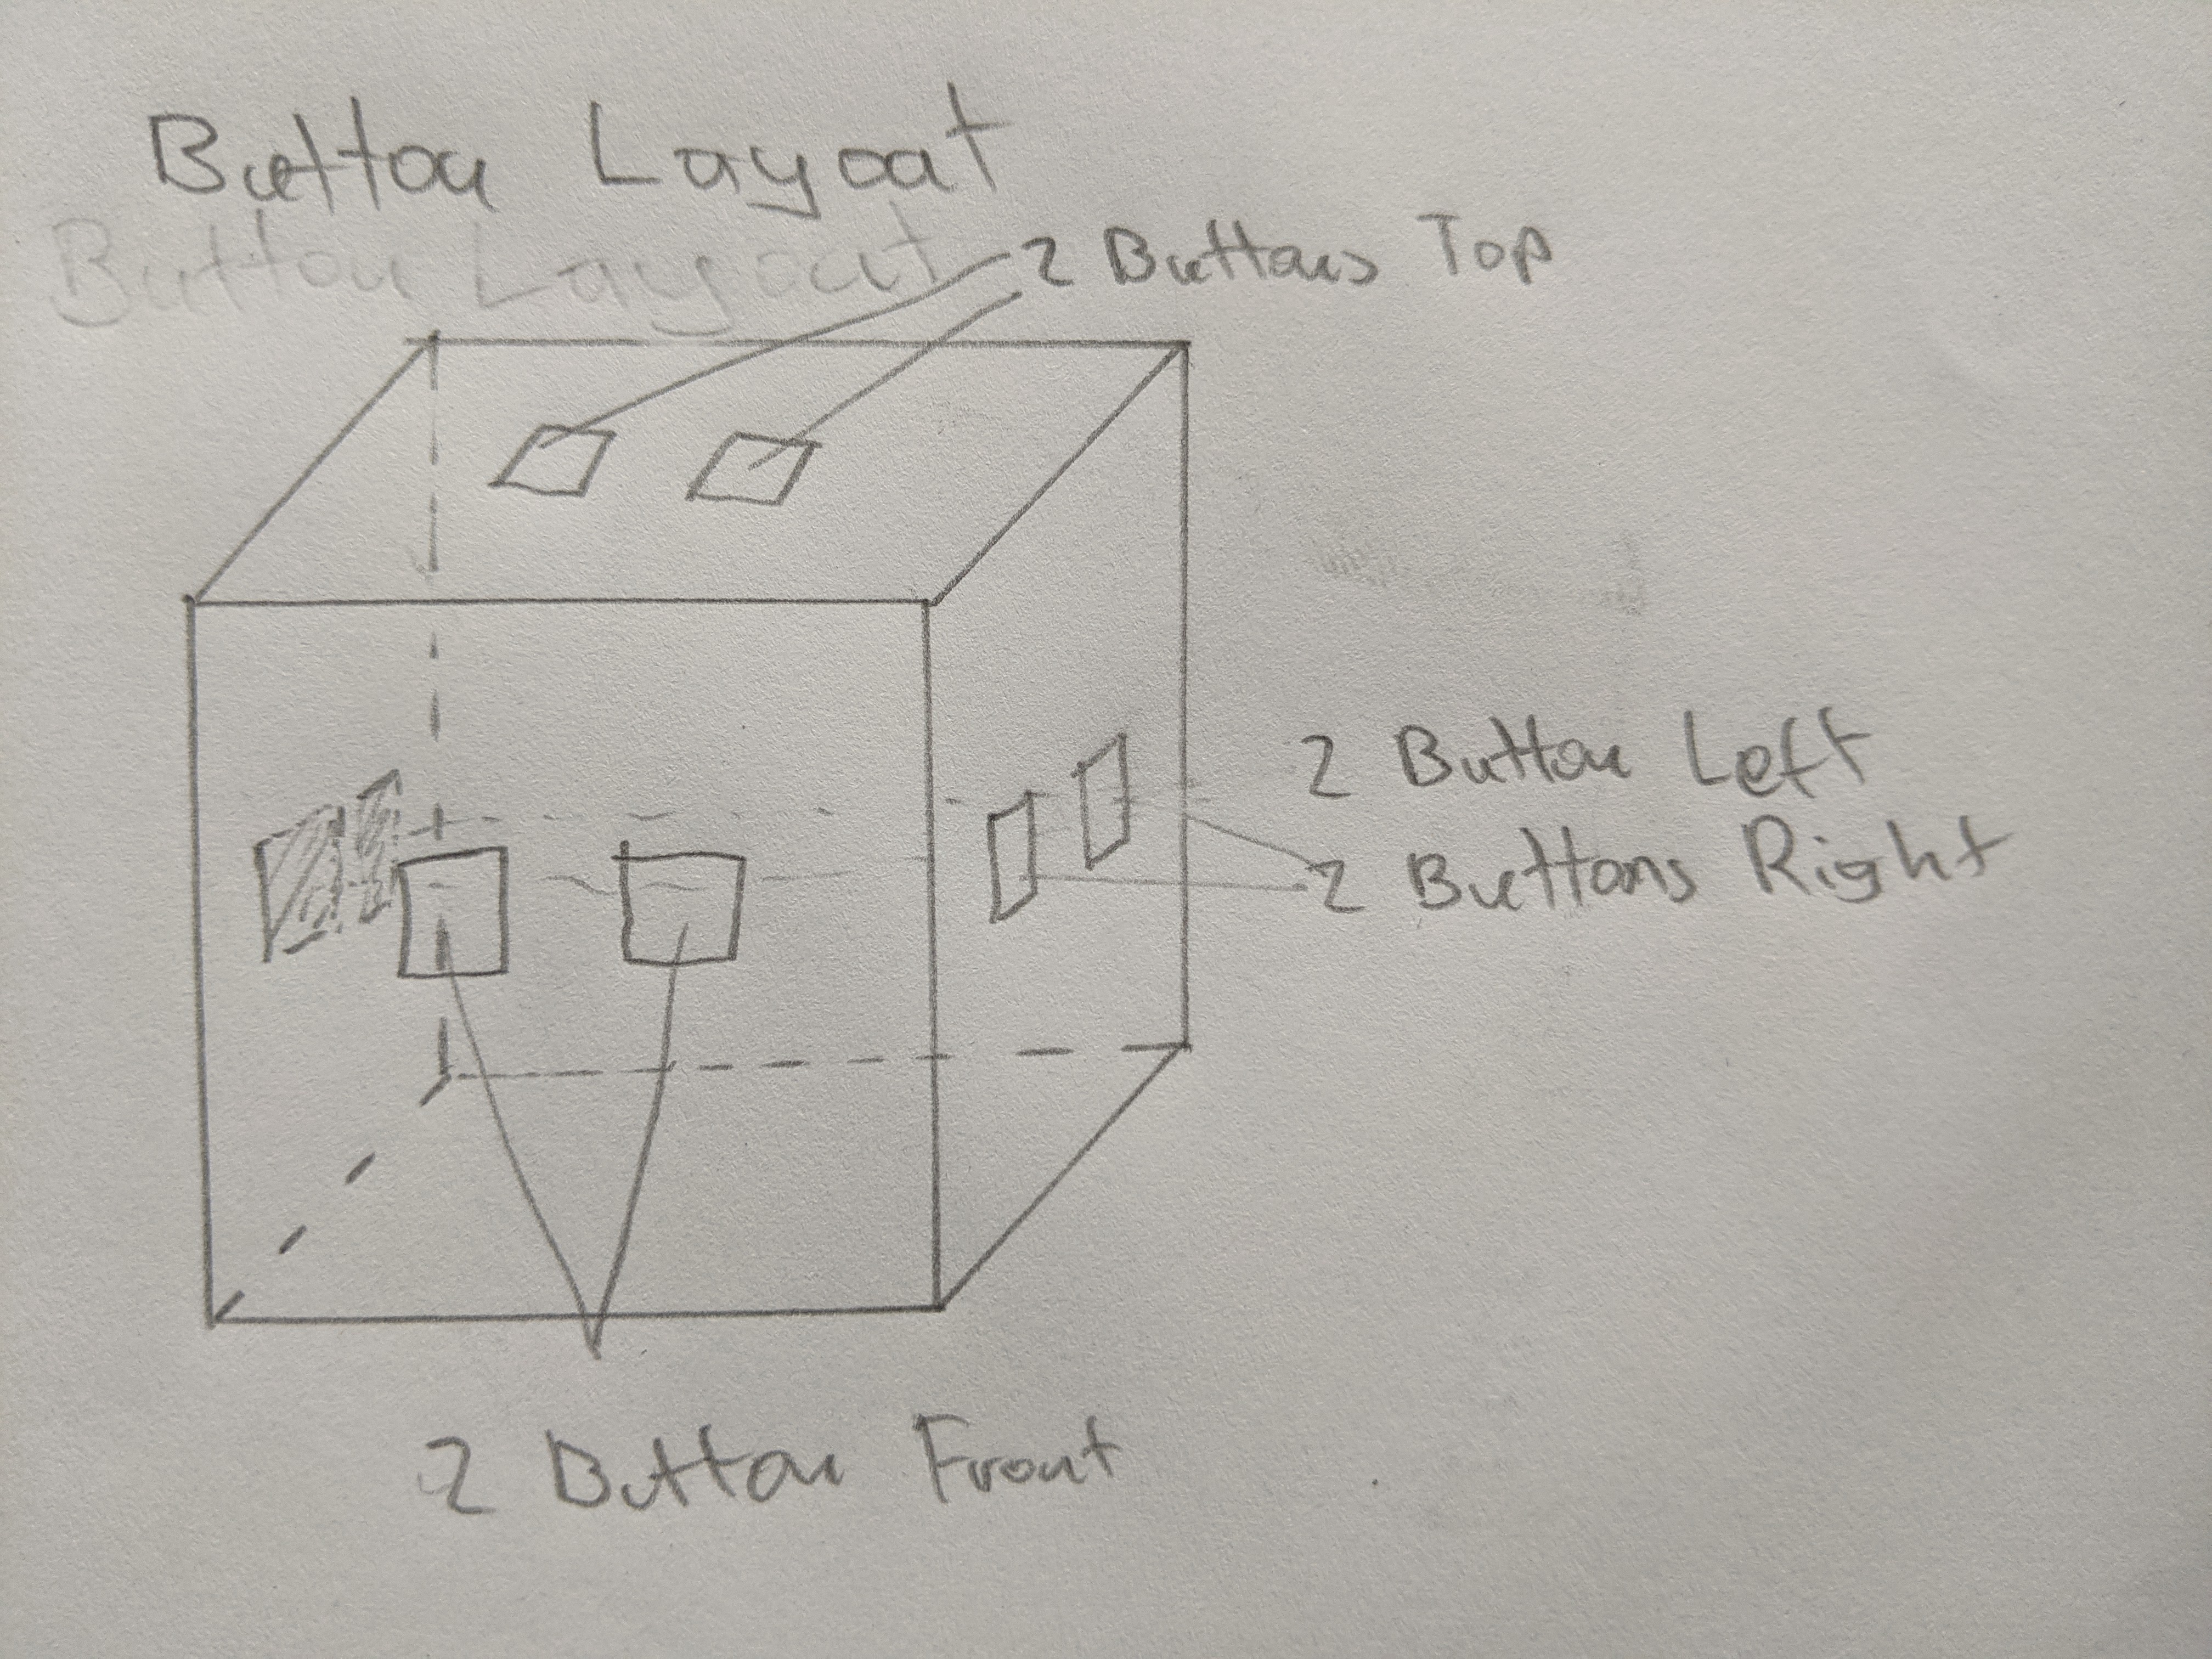 Button Layout
Button Layout
2 Buttons Top
2 Button Left
2 Buttons Right
2 Button Front